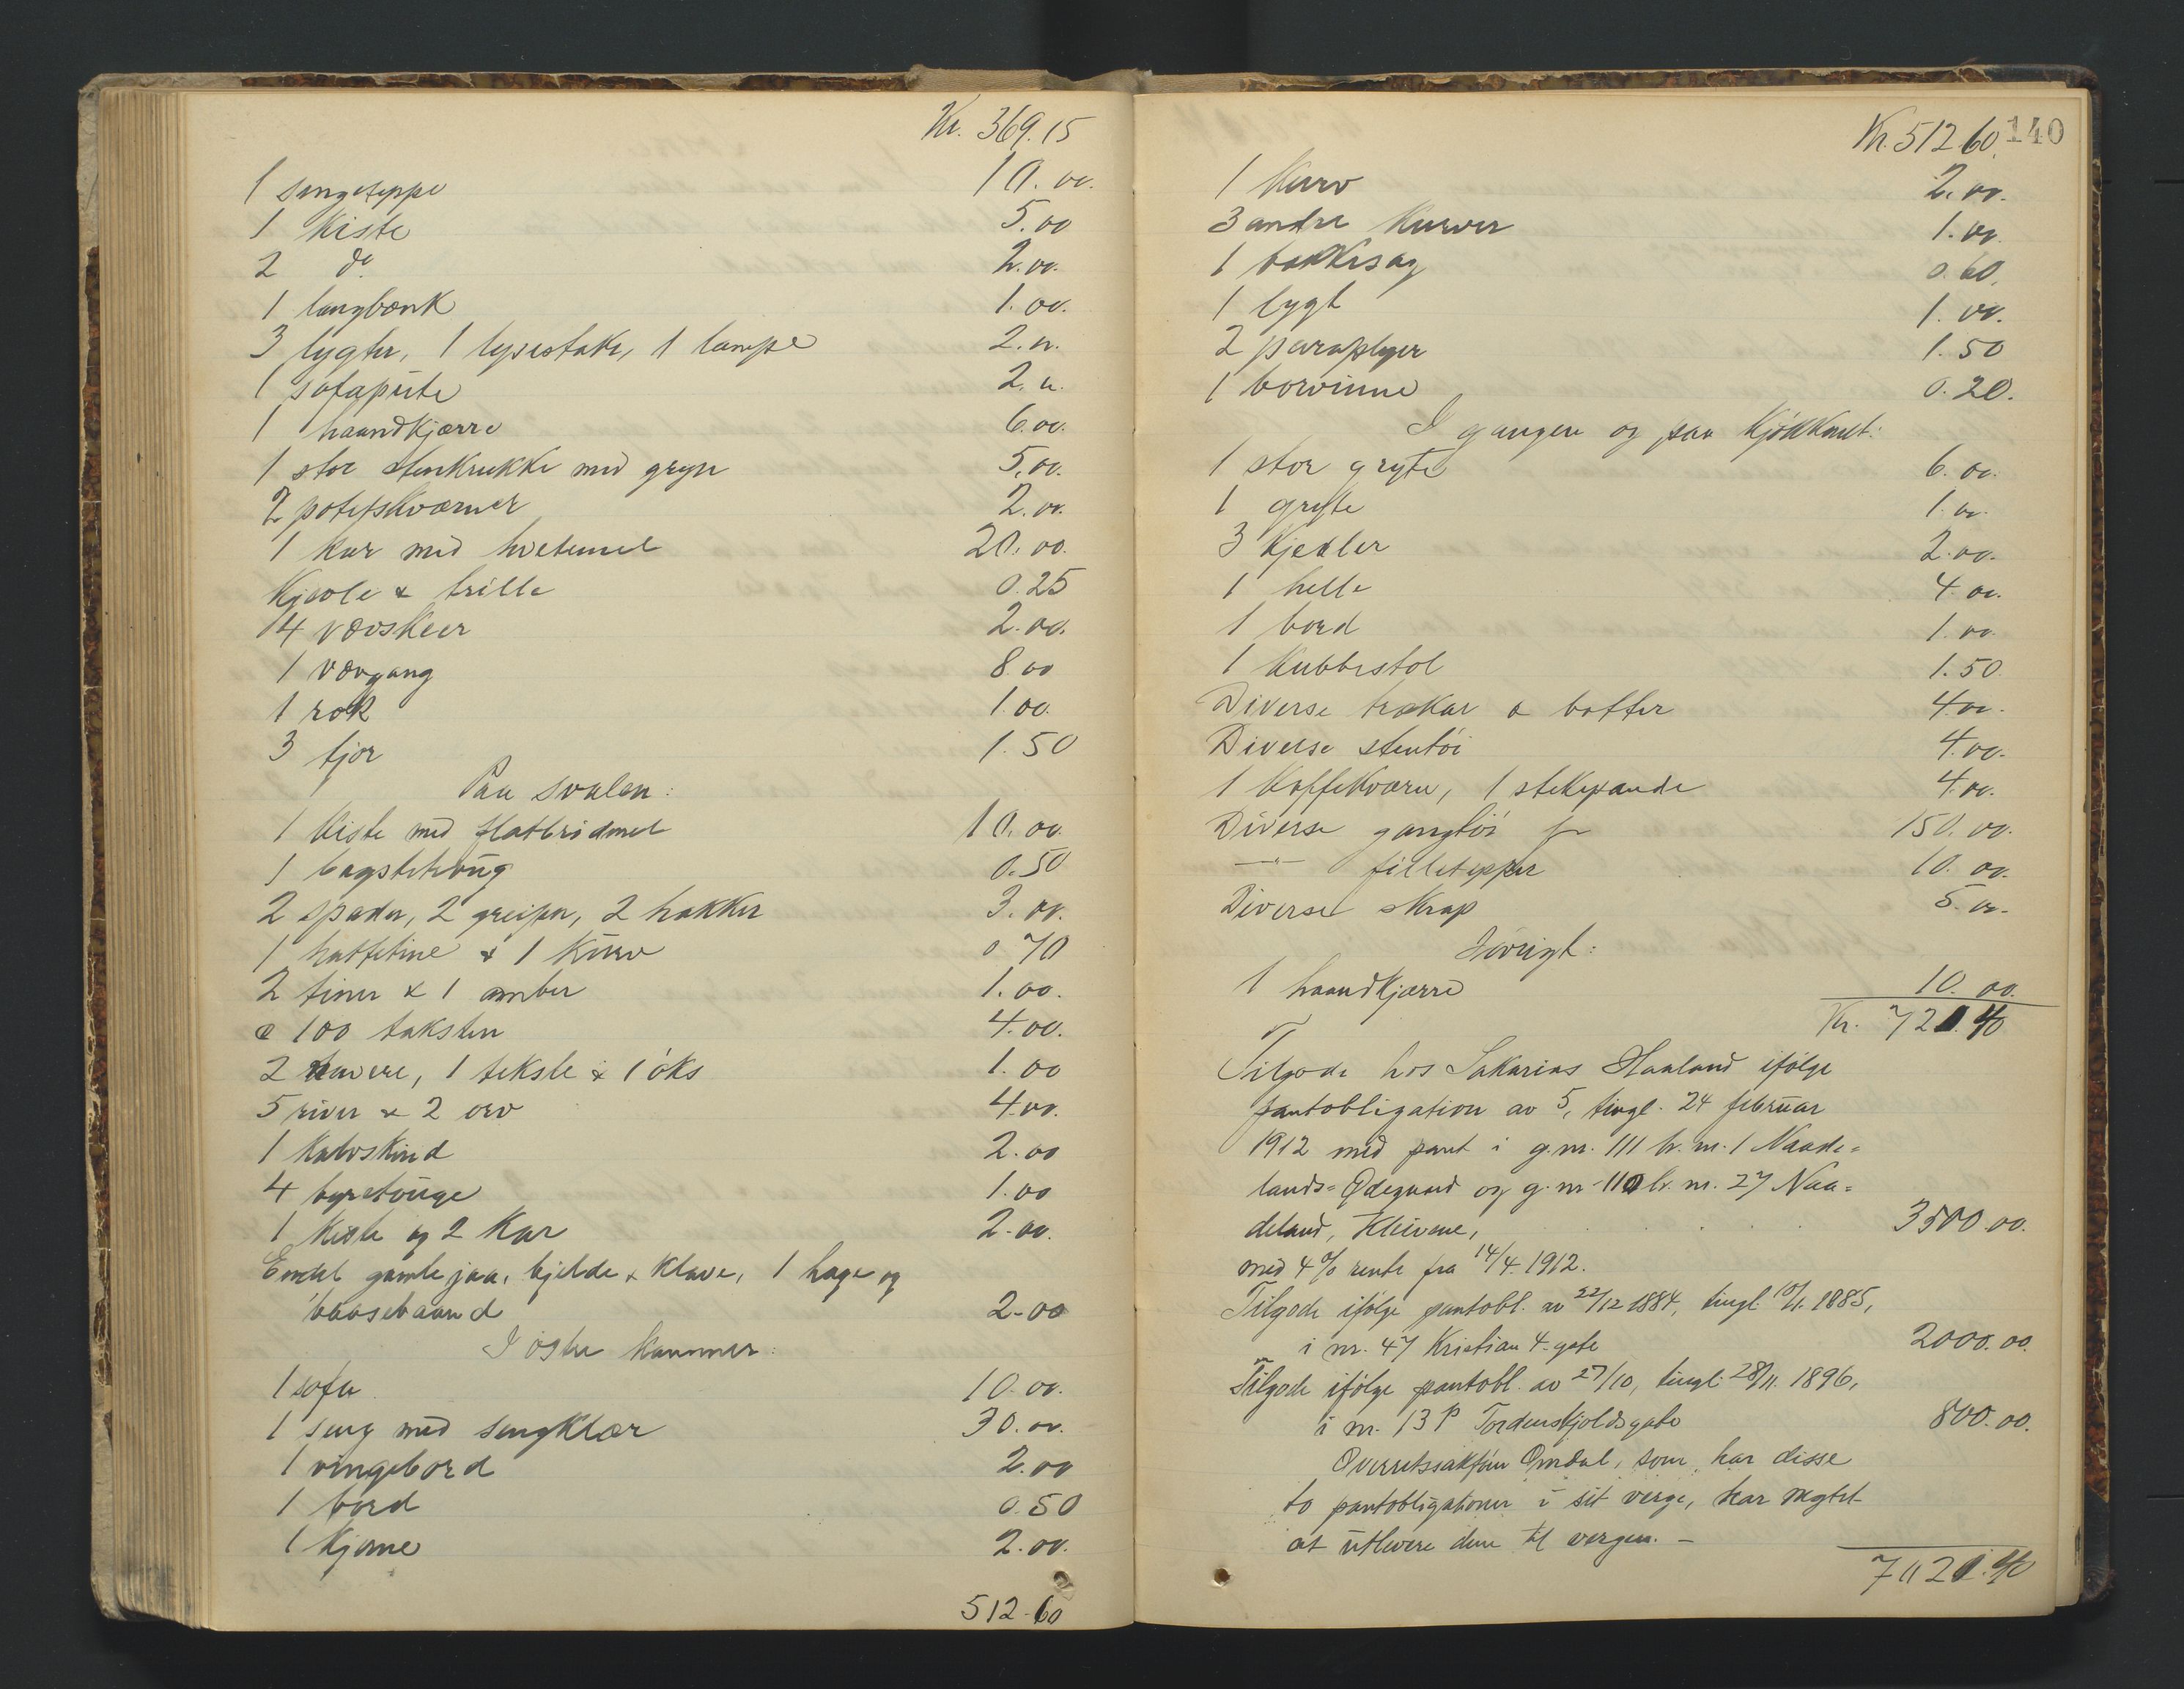 Kr. 369.15
1 sengeteppe 10.00.
1 kiste 5.00
2 do 2.00.
1 langbænk 1.00.
3 lygter, 1 lysestake, 1 lampe 2.00.
1 sofapute 2.00.
1 haandkjærre 6.00.
1 stor stenkrukke med gryn 5.00.
2 potetskværner 2.00.
1 kar med hvetemel 20.00.
Kjevle & trille 0.25
14 vævskeer 2.00.
1 vævgang 8.00
1 rok 1.00.
3 tjor 1.50
Paa svalen:
1 kiste med flatbrødmel 10.00.
1 bagstetrøug 0.50
2 spader, 2 greiper, 2 hakker 3.00.
1 hattetine & 1 kurv 0.70
2 tiner & 1 amber 1.00.
100 taksten 4.00.
2 navere, 1 tekste & 1 øks 1.00
5 river & 2 orv 4.00.
1 kalvskind 2.00
4 1.00
1 kiste og 2 kar 2.00.
Endel gamle jaa, bjelde & klave, 1 hage og
baasebaand 2.00
I østre kammer:
1 sofa 10.00.
1 seng med sengklær 30.00.
1 vingebord 2.00
1 bord 0.50
1 kjerne 2.00.
512.60
Kr. 512.60. 140
1 kurv 2.00.
3 andre kurver 1.00
1 bakkesag 0.60.
1 lygt 1.00.
2 paraplyer 1.50
1 borvinne 0.20.
I gangen og paa kjøkkenet:
1 stor gryte 6.00.
1 gryte 1.00.
3 kjedler 2.00.
1 helle 4.00.
1 bord 1.00.
1 kubbestol 1.50
Diverse trækar & bøtter 4.00.
Diverse stentøi 4.00.
1 kaffekværn, 1 stekepande 4.00.
Diverse gangtøi 150.00.
—"— filletepper 10.00.
Diverse skrap 5.00.
Iøvrigt:
1 haandkjærre 10.00.
Kr. 721.40
Tilgode hos Sakarias Haaland ifølge
pantobligation av 5, tingl. 24 februar
1912 med pant i g.nr. 111 br.nr. 1 Naade=
lands=Ødegaard og g.nr. 110 br.nr. 27 Naa=
deland, Kleivene, 3500.00.
med 4% rente fra 14/4. 1912.
Tilgode ifølge pantobl. av 22/12 1884, tingl. 10/1. 1885,
i nr. 47 Kristian 4. gate 2000.00.
Tilgode ifølge pantobl. av 27/10, tingl. 28/11. 1896,
i nr. 13 P Tordenskjoldsgate 800.00.
Overretssakfører Omdal, som har disse
to pantobligationer i sit verge, har negtet
at utlevere dem til vergen. –
7021.40